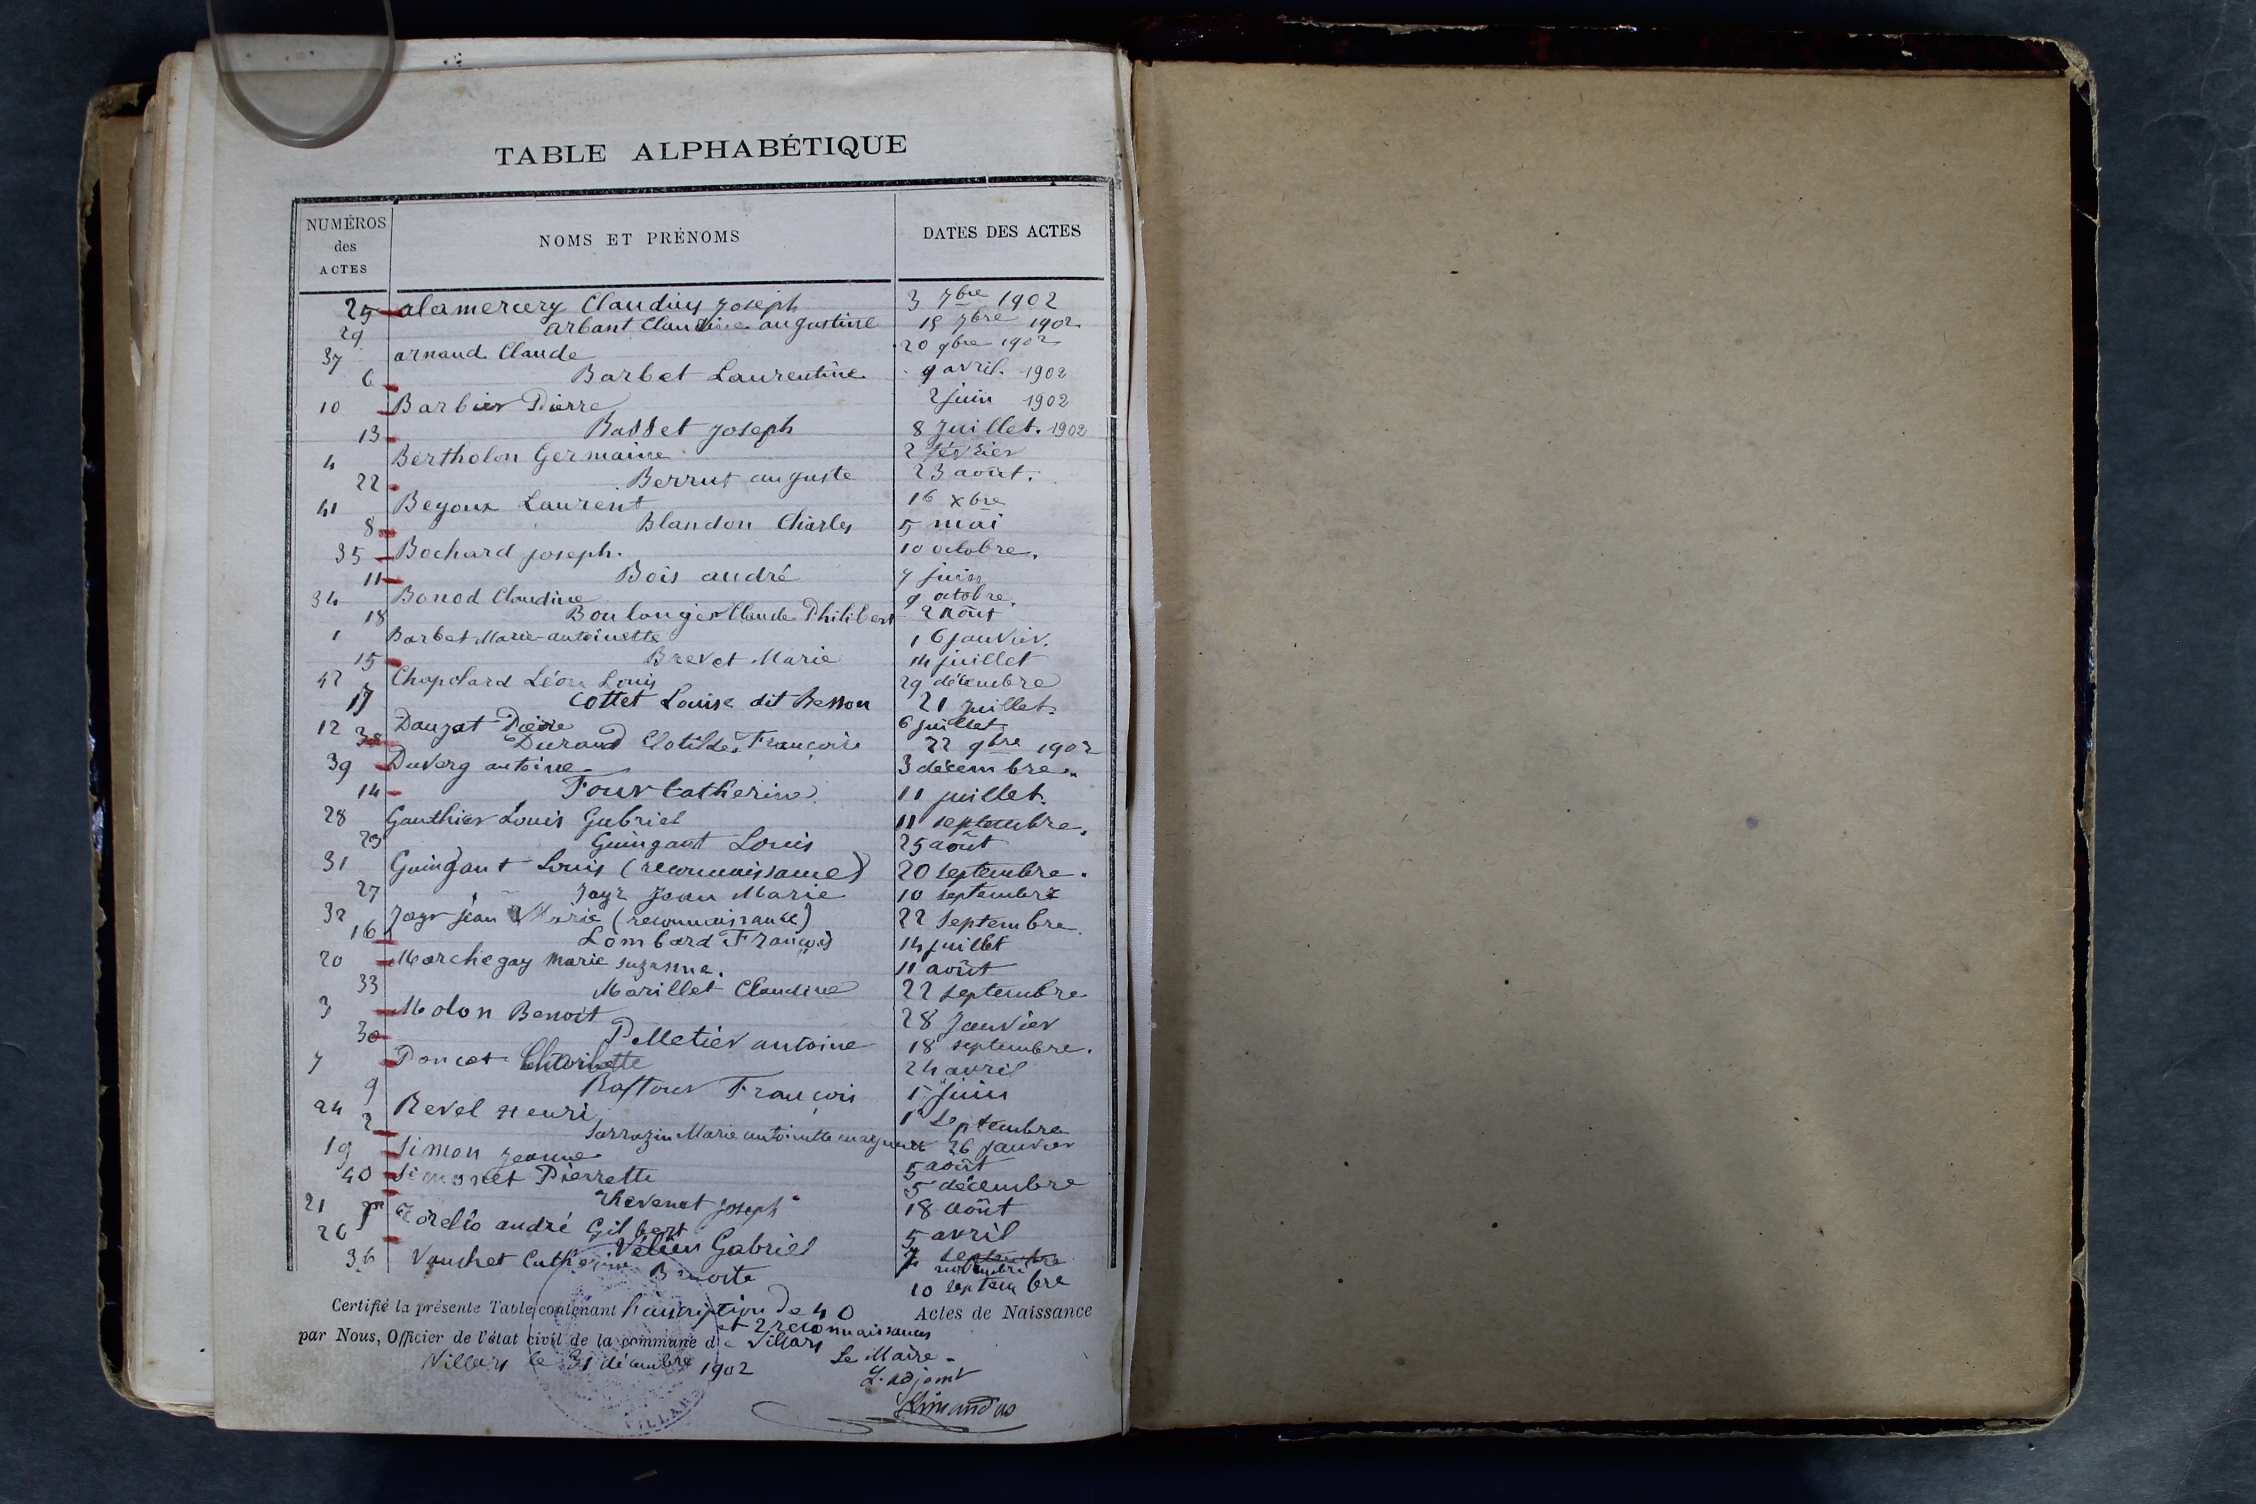 TABLE ALPHABÉTIQUE
NUMÉROS des ACTES NOMS ET PRÉNOMS DATES DES ACTES
25 alamercery Claudius Joseph 3 7bre 1902
29 arbant Claudine augustine 15 7bre 1902
37 arnaud Claude 20 9bre 1902
6 Barbet Laurentine 9 avril. 1902
10 Barbier Pierre 2 juin 1902
13 Basset Joseph 8 Juillet. 1902
4 Bertholon Germaine 2 février
22 Berrut auguste 23 août.
41 Beyoux Laurent 16 xbre
8 Blandon Charles 5 mai
35 Bochard joseph. 10 octobre.
11 Bois andré 7 juin
34 Bonod Claudine 9 octobre.
18 Boulanger Claude Philibert 2 Août
1 Barbet Marie-antoinette 16 janvier.
15 Brevet Marie 14 juillet
42 Chapelard Léon Louis 29 décembre
17 Cottet Louise dit Besson 21 juillet.
12 Dauzat Pierre 6 juillet
38 Durand Clotilde Françoise 22 9bre 1902
39 Duverg antoine 3 décembre.
14 Four Catherine 11 juillet.
28 Gauthier Louis Gabriel 11 septembre.
23 Guingant Louis 25 août
31 Guingant Louis (reconnaissance) 20 septembre.
27 Jayr Jean Marie 10 septembre
32 Jayr jean Marie (reconnaissance) 22 Septembre
16 Lombard François 14 juillet
20 Marchegay Marie suzanne. 11 août
33 Marillet Claudine 22 septembre
3 Molon Benoit 28 Janvier
30 Pelletier antoine 18 septembre.
7 Poncet 24 avril
9 Raftour François 1er Juin
24 Revel Henri 1er Septembre
2 Sarrazin Marie antoinette 26 Janvier
19 Simon Jeanne 5 août
40 Simonet Pierrette 5 décembre
21 Thevenot Joseph 18 août
5 andré Gilbert 5 avril
26 Gabriel 7 septembre
novembre
36 Vauchet Catherine Benoite 10 septembre
Certifié la présente Table contenant l'inscription de 40 Actes de Naissance
et 2 reconnaissances
par Nous, Officier de l'état civil de la commune de Villars
Villars le 31 décembre 1902 Le Maire
L'adjoint
VILLARS